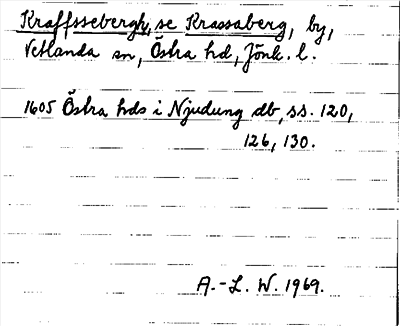 Kraffssebergh, se Krassaberg, by,
Vetlanda sn, Östra hd, Jönk. l.
1605 Östra hds i Njudung db, ss. 120,
126, 130.
A.-L. W. 1969.